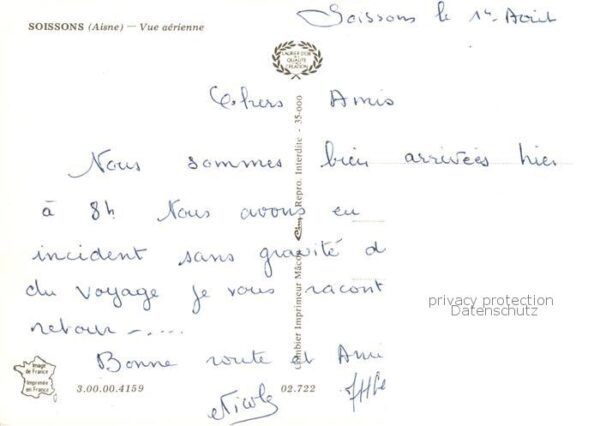 Soissons le 1er Avril
SOISSONS (Aisne) — Vue aérienne
LAURIER D'OR
QUALITÉ
CRÉATION
Chers Amis
Nous sommes bien arrivées hier
à 8h Nous avons eu
incident sans gravité d
du voyage je vous racont
retour -....
Bonne route et Ami
Nicole
Combier Imprimeur Mâcon Cim Repro. Interdite - 35-000
privacy protection
Datenschutz
Image
de France
Imprimée
en France
3.00.00.4159
02.722